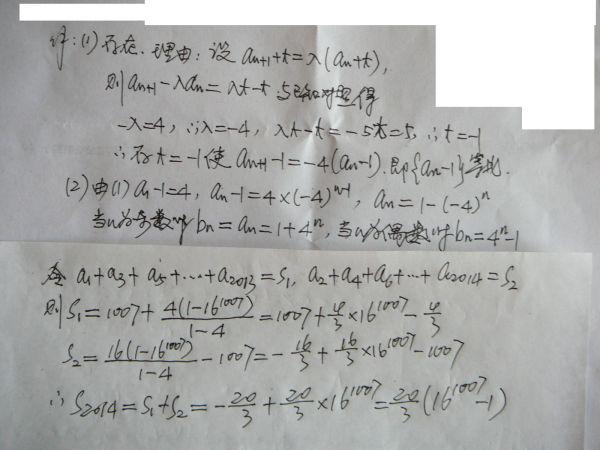 解:(1)存在.理由:设 aₙ₊₁+t=λ(aₙ+t),
则 aₙ₊₁-λaₙ=λt-t 与已知对照得
-λ=4, ∴λ=-4, λt-t=-5t=5, ∴t=-1
∴存t=-1使 aₙ₊₁-1=-4(aₙ-1).即{aₙ-1}等比.
(2)由(1) a₁-1=4, aₙ-1=4×(-4)ⁿ⁻¹, aₙ=1-(-4)ⁿ
当n为奇数时 bₙ=aₙ=1+4ⁿ, 当n为偶数时 bₙ=4ⁿ-1
令 a₁+a₃+a₅+…+a₂₀₁₃=S₁, a₂+a₄+a₆+…+a₂₀₁₄=S₂
则 S₁=1007+4(1-16¹⁰⁰⁷)/(1-4)=1007+4/3×16¹⁰⁰⁷-4/3
S₂=16(1-16¹⁰⁰⁷)/(1-4)-1007=-16/3+16/3×16¹⁰⁰⁷-1007
∴S₂₀₁₄=S₁+S₂=-20/3+20/3×16¹⁰⁰⁷=20/3(16¹⁰⁰⁷-1)